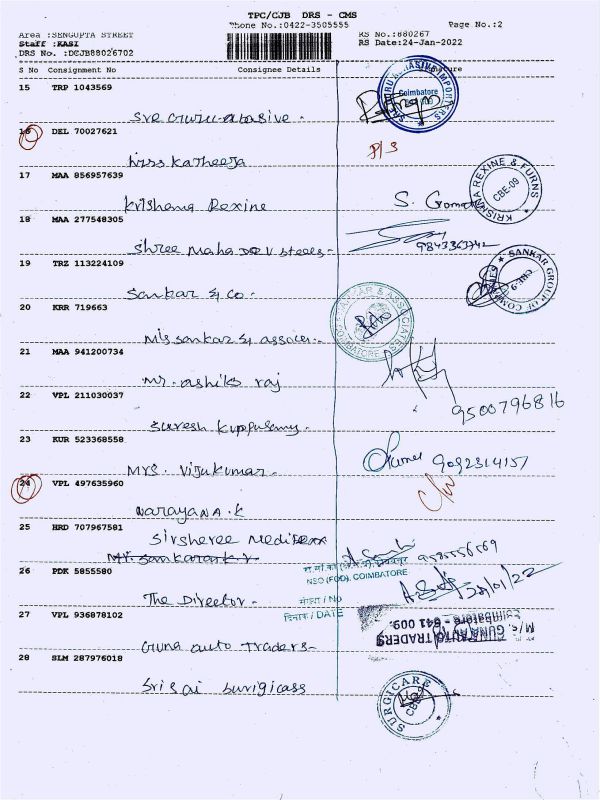 TPC/CJB DRS - CMS
Phone No.:0422-3505555 Page No.:2
Area :SENGUPTA STREET RS No.:880267
Staff :KASI RS Date:24-Jan-2022
DRS No. :DCJB88026702
S No Consignment No Consignee Details Signature
15 TRP 1043569
Coimbatore
Sre Guru abasive -
16 DEL 70027621
Miss Katheeja
17 MAA 856957639
KRISHNA REXINE & FURNS
CBE-09
Krishna Rexine
18 MAA 277548305
Shree Mahadev Steels -
9843363742
19 TRZ 113224109
SANKAR GROUP OF COMPANIES
Sankar & Co -
20 KRR 719663
SANKAR & ASSOCIATES
COIMBATORE
M/s Sankar & assoc -
21 MAA 941200734
Mr. ashik raj
22 VPL 211030037
9500796816
Suresh Kuppusamy -
23 KUR 523368558
9092314157
Mrs. Vijukumar -
24 VPL 497635960
Narayana .K
25 HRD 707967581
Sirsheree Medi
26 PDK 5855580
NSO (FOD), COIMBATORE
संख्या / No
दिनांक / DATE
The Director -
27 VPL 936878102
M/s. GUNA AUTO TRADERS
Coimbatore - 641 009.
Guna auto Traders -
28 SLM 287976018
SURGICARE
Sri Sai Surigicass